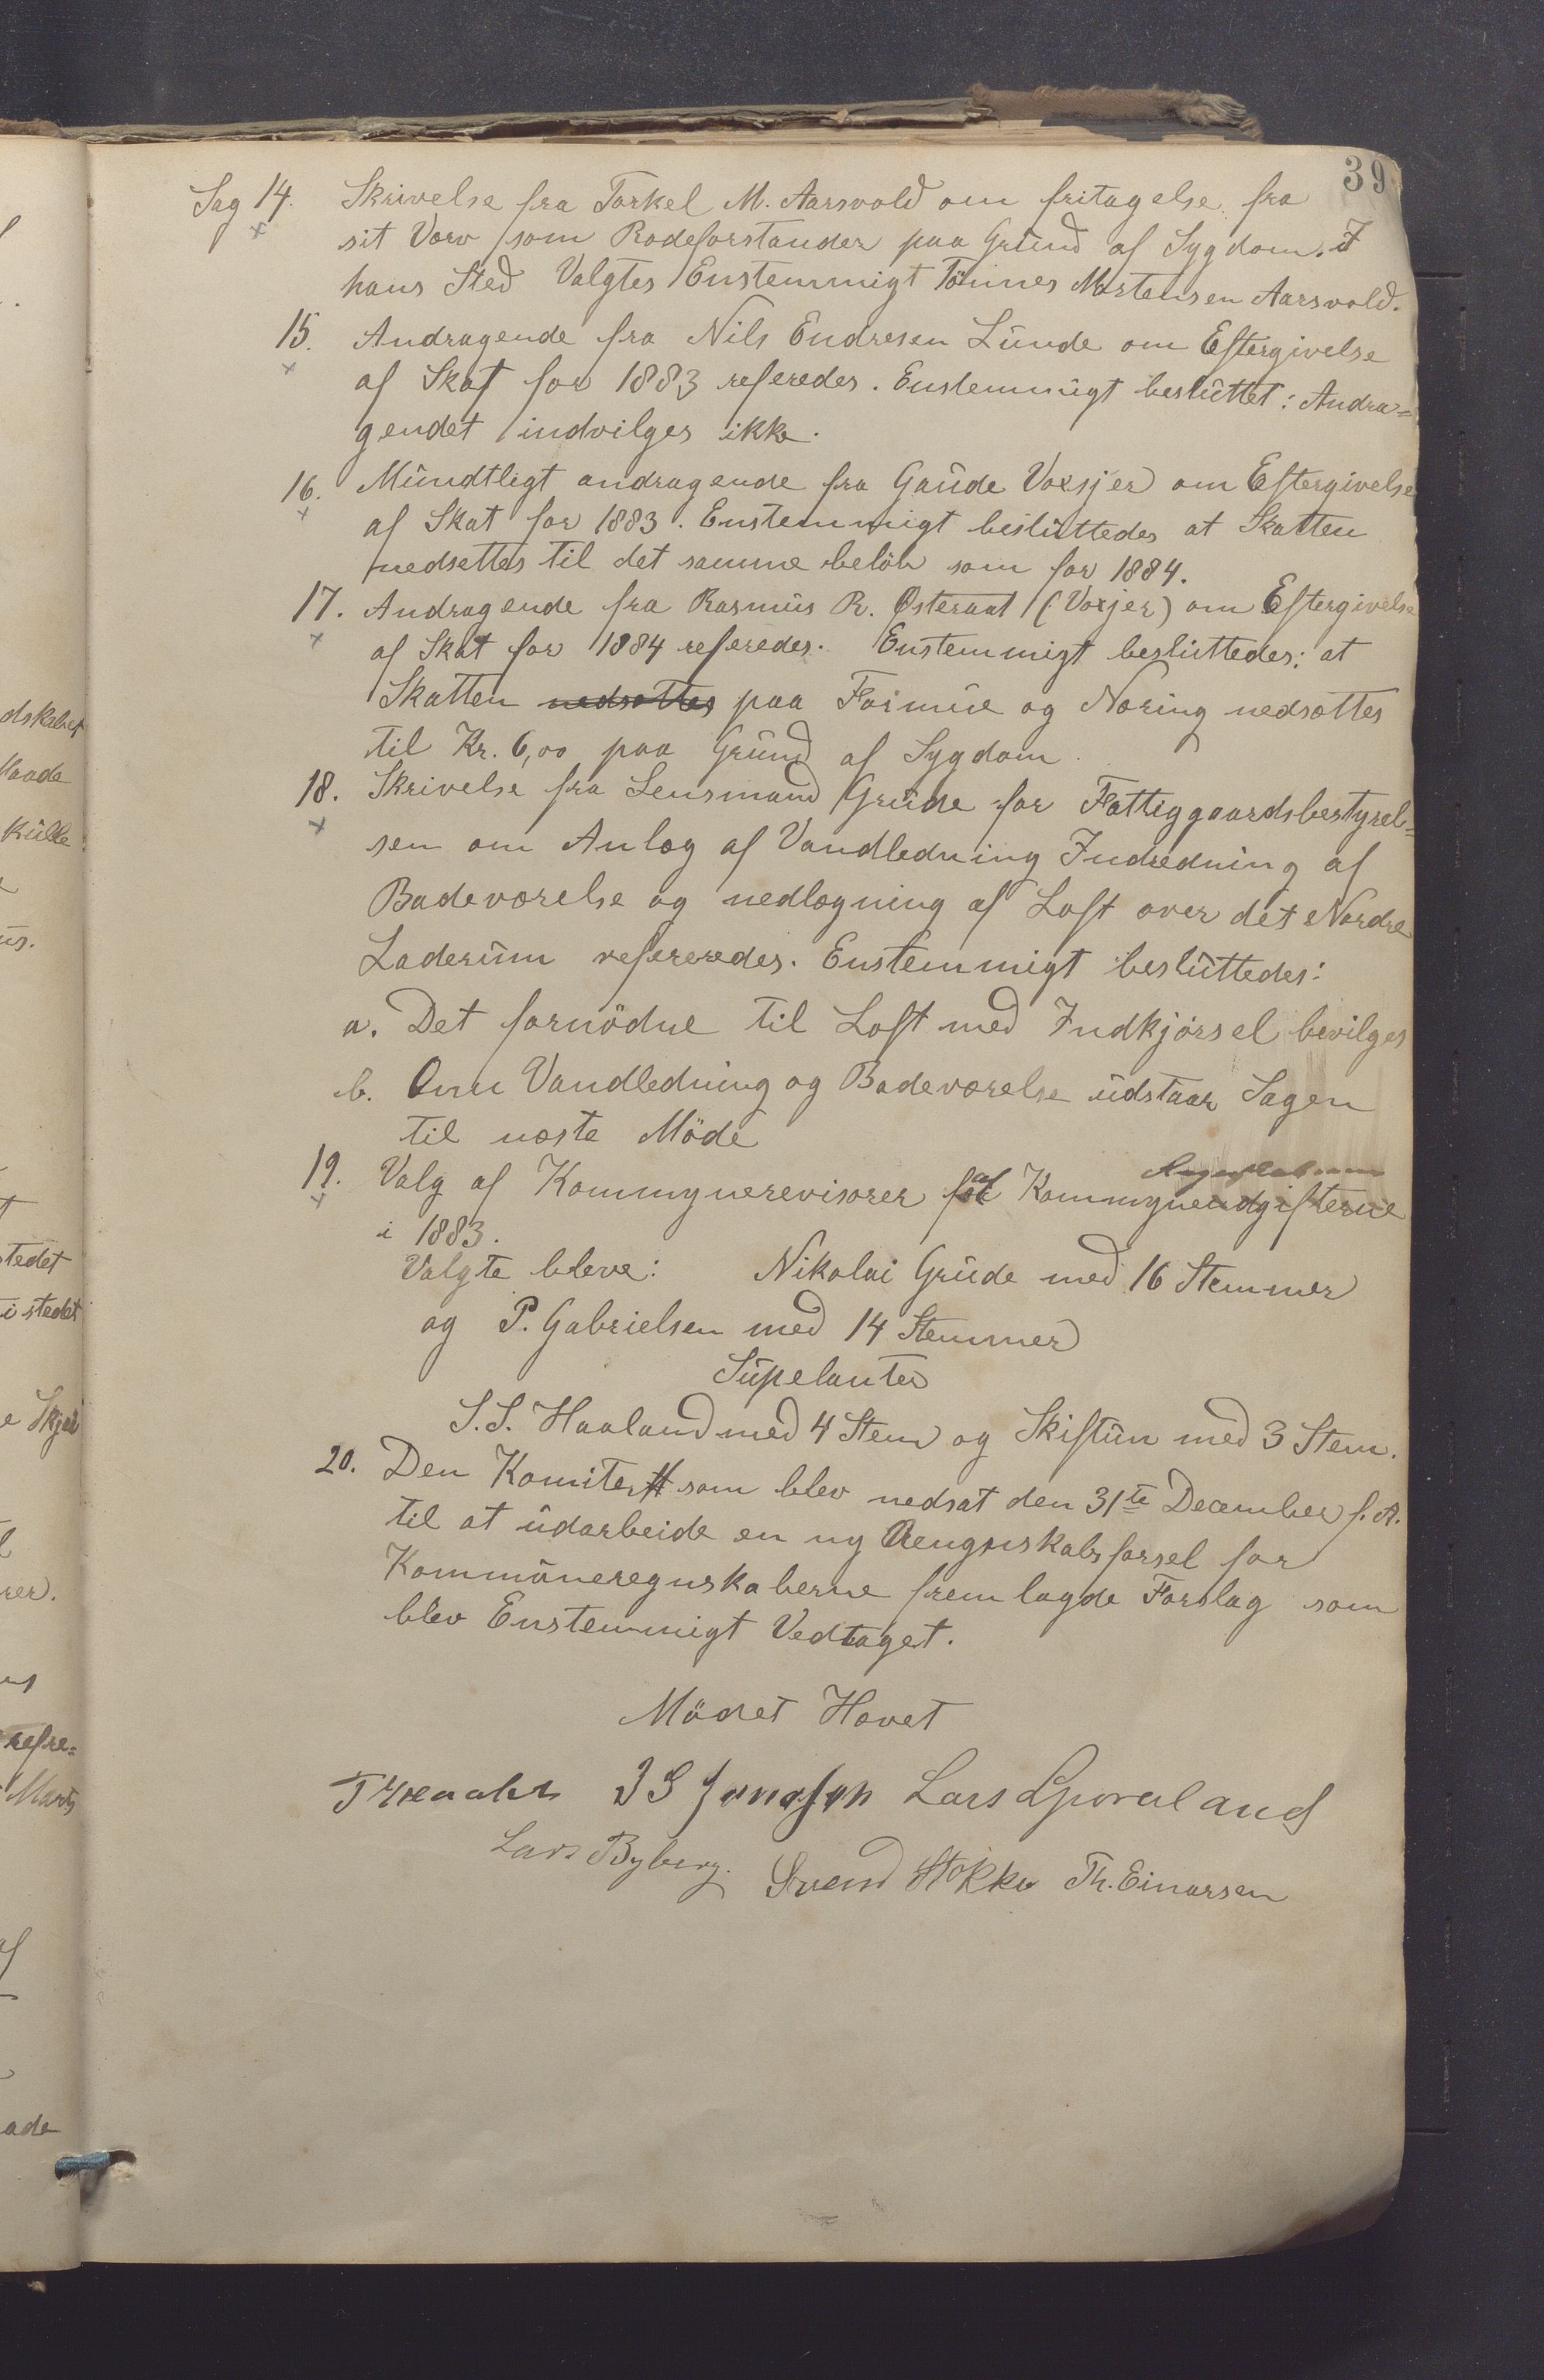 39
Sag 14. Skrivelse fra Torkel M. Aarsvold om fritagelse fra
sit Værv som Rodeforstander paa Grund af Sygdom. I
hans Sted Valgtes Enstemmigt Tönnes Mortensen Aarsvold.
15. Andragende fra Nils Endresen Lunde om Eftergivelse
af Skat for 1883 referedes. Enstemmigt besluttet: Andra=
gendet indvilges ikke.
16. Mundtligt andragende fra Gaude Voxsjer om Eftergivelse
af Skat for 1883. Enstemmigt besluttedes at Skatten
nedsettes til det samme belöb som for 1884.
17. Andragende fra Rasmus R. Østeraat (Voxjer) om Eftergivelse
af Skat for 1884 referedes. Enstemmigt besluttedes: at
Skatten nedsættes paa Formue og Næring nedsættes
til Kr. 6,00 paa Grund af Sygdom.
18. Skrivelse fra Lensmand Grude for Fattiggaardsbestyrel=
sen om Anlæg af Vandledning Indredning af
Badeværelse og nedlægning af Loft over det Nordre
Laderum refereredes. Enstemmigt besluttedes:
a. Det fornödne til Loft med Indkjörsel bevilges
b. Om Vandledning og Badeværelse udstaar Sagen
til næste Möde
19. Valg af Kommunerevisorer for af Kommuneudgifterne
i 1883.
Valgte bleve: Nikolai Grude med 16 Stemmer
og P. Gabrielsen med 14 Stemmer
Supelanter
S. S. Haaland med 4 Stem og Skiftun med 3 Stem.
20. Den Komite som blev nedsat den 31te December f. A.
til at udarbeide en ny Rengnskabsforsel for
Kommuneregnskaberne fremlagde Forslag som
blev Enstemmigt Vedtaget.
Mödet Hævet
Lars Lyoreland
Lars Byberg. Svend Stokke Th. Einarsen
dskabet
Maade
Kulle
us.
stedet
i stedet
e Skjer
rer.
refre=
Marts
ade